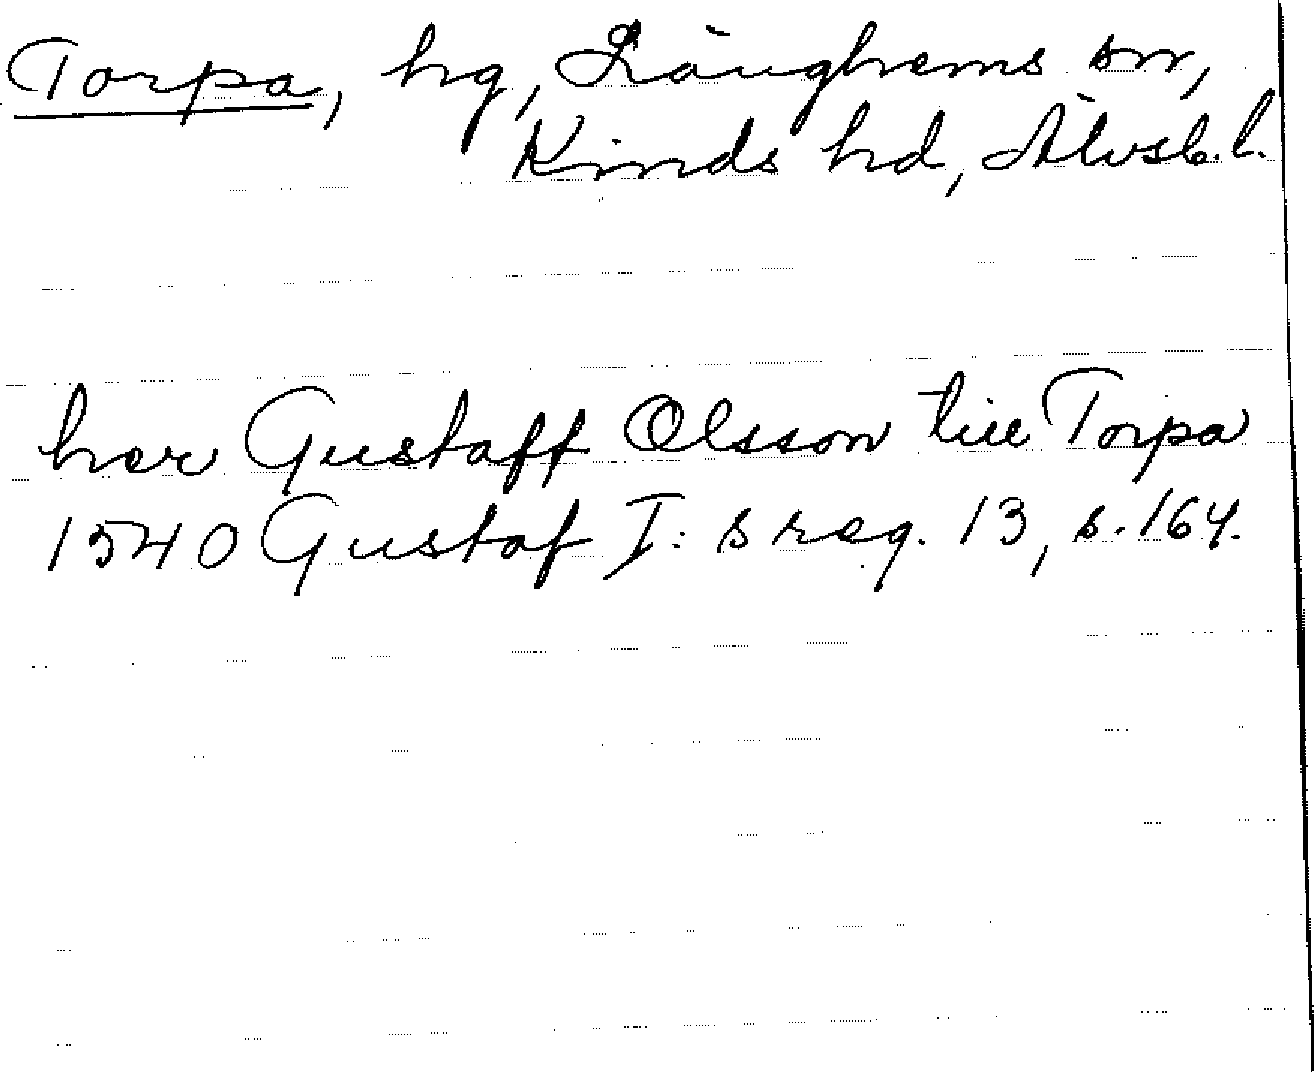 Torpa, hg, Länghems sn,
Kinds hd, Älvsb. l.
her Gustaff Olsson till Torpa
1540 Gustaf I: s reg. 13, s. 164.